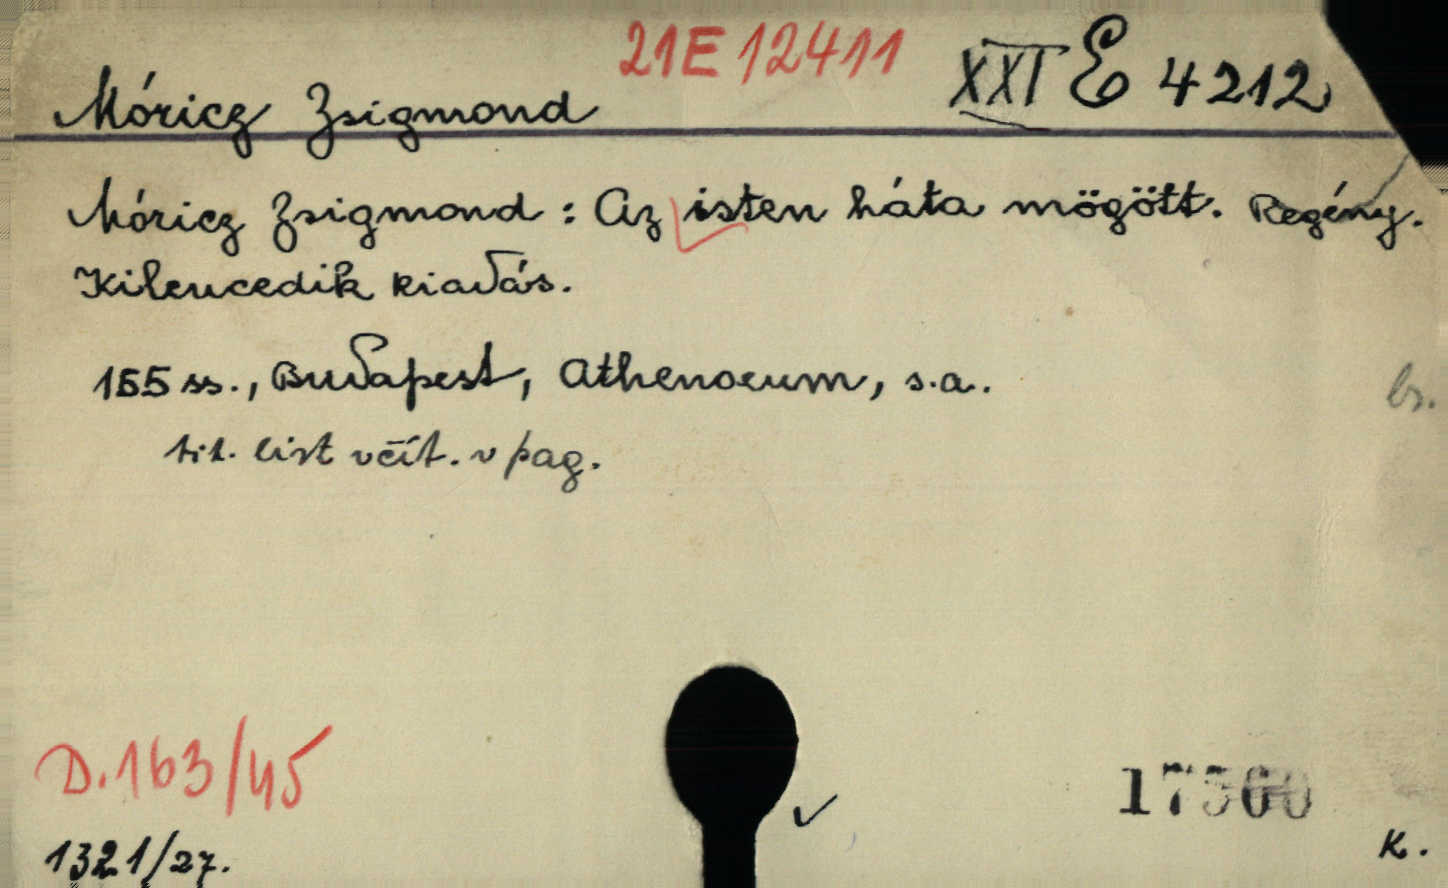 21E 12411
XXI E 4212
Móricz Zsigmond
Móricz Zsigmond: Az isten háta mögött. Regény.
Kilencedik kiadás.
155 ss., Budapest, Athenaeum, s.a.
br.
tit. list včít. v pag.
D.163/45
17560
1321/27.
K.